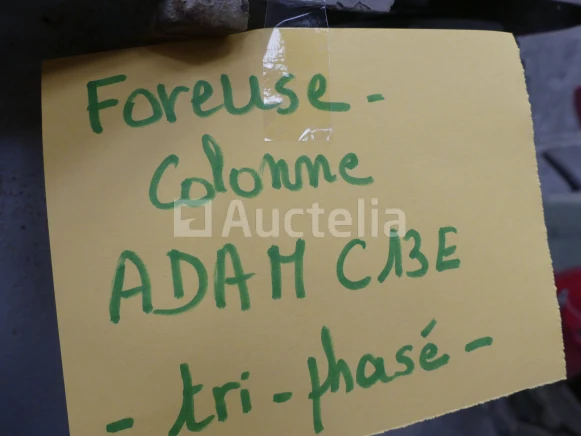 Foreuse -
Colonne
Auctelia
ADAM C13E
- tri-phasé -